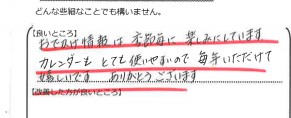 どんな些細なことでも構いません。
【良いところ】
おでかけ情報は 方面毎に 楽しみにしています。
カレンダーも とても使いやすいので 毎年いただけて
嬉しいです ありがとうございます
【改善した方が良いところ】